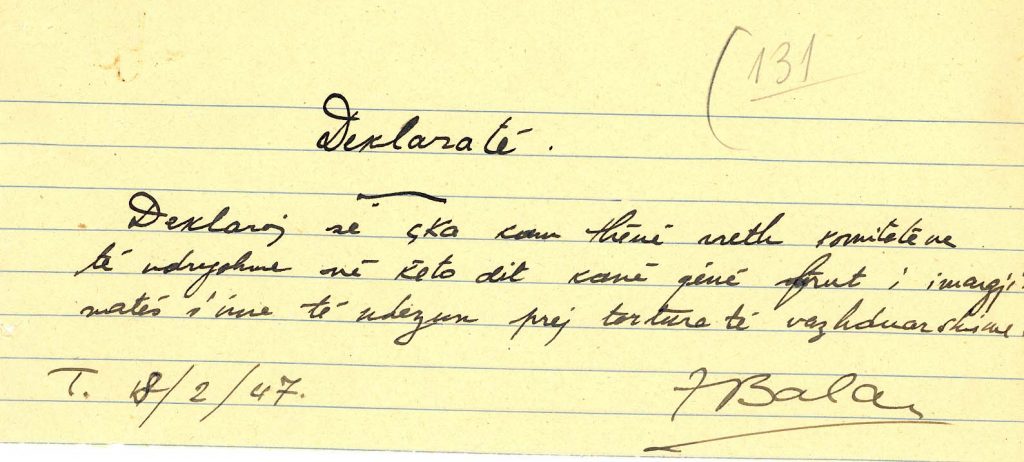 (131
Deklaratë.
Deklaroj se çka kam thënë rreth komitetëve
të ndryshme në këto dit kanë qënë frut i imargji-
natës s'ime të ndezun prej tortura të vazhduarshme.
T. 18/2/47.
Bala